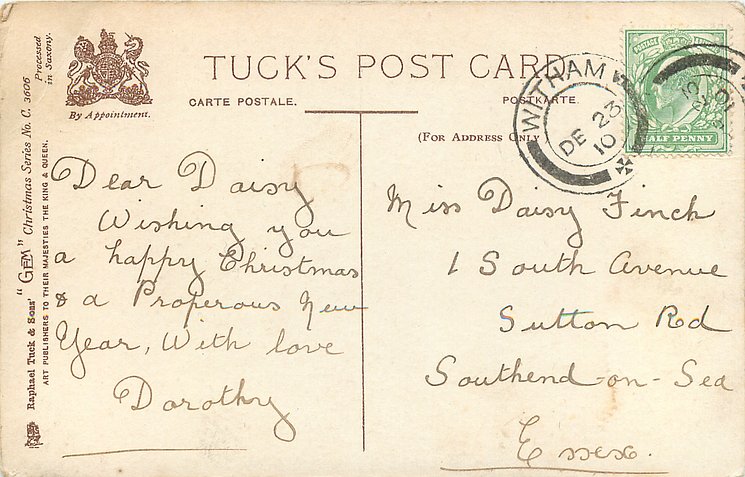 TUCK'S POST CARD
CARTE POSTALE.
POSTKARTE.
By Appointment.
(FOR ADDRESS ONLY
WITHAM
DE 23
10
HALF PENNY
POSTAGE
Dear Daisy
Wishing you
a happy Christmas
& a Properous New
Year, With love
Dorothy
Miss Daisy Finch
1 South Avenue
Sutton Rd
Southend-on-Sea
Essex.
Raphael Tuck & Sons' "GEM" Christmas Series No. C. 3606
ART PUBLISHERS TO THEIR MAJESTIES THE KING & QUEEN.
Processed
in Saxony.